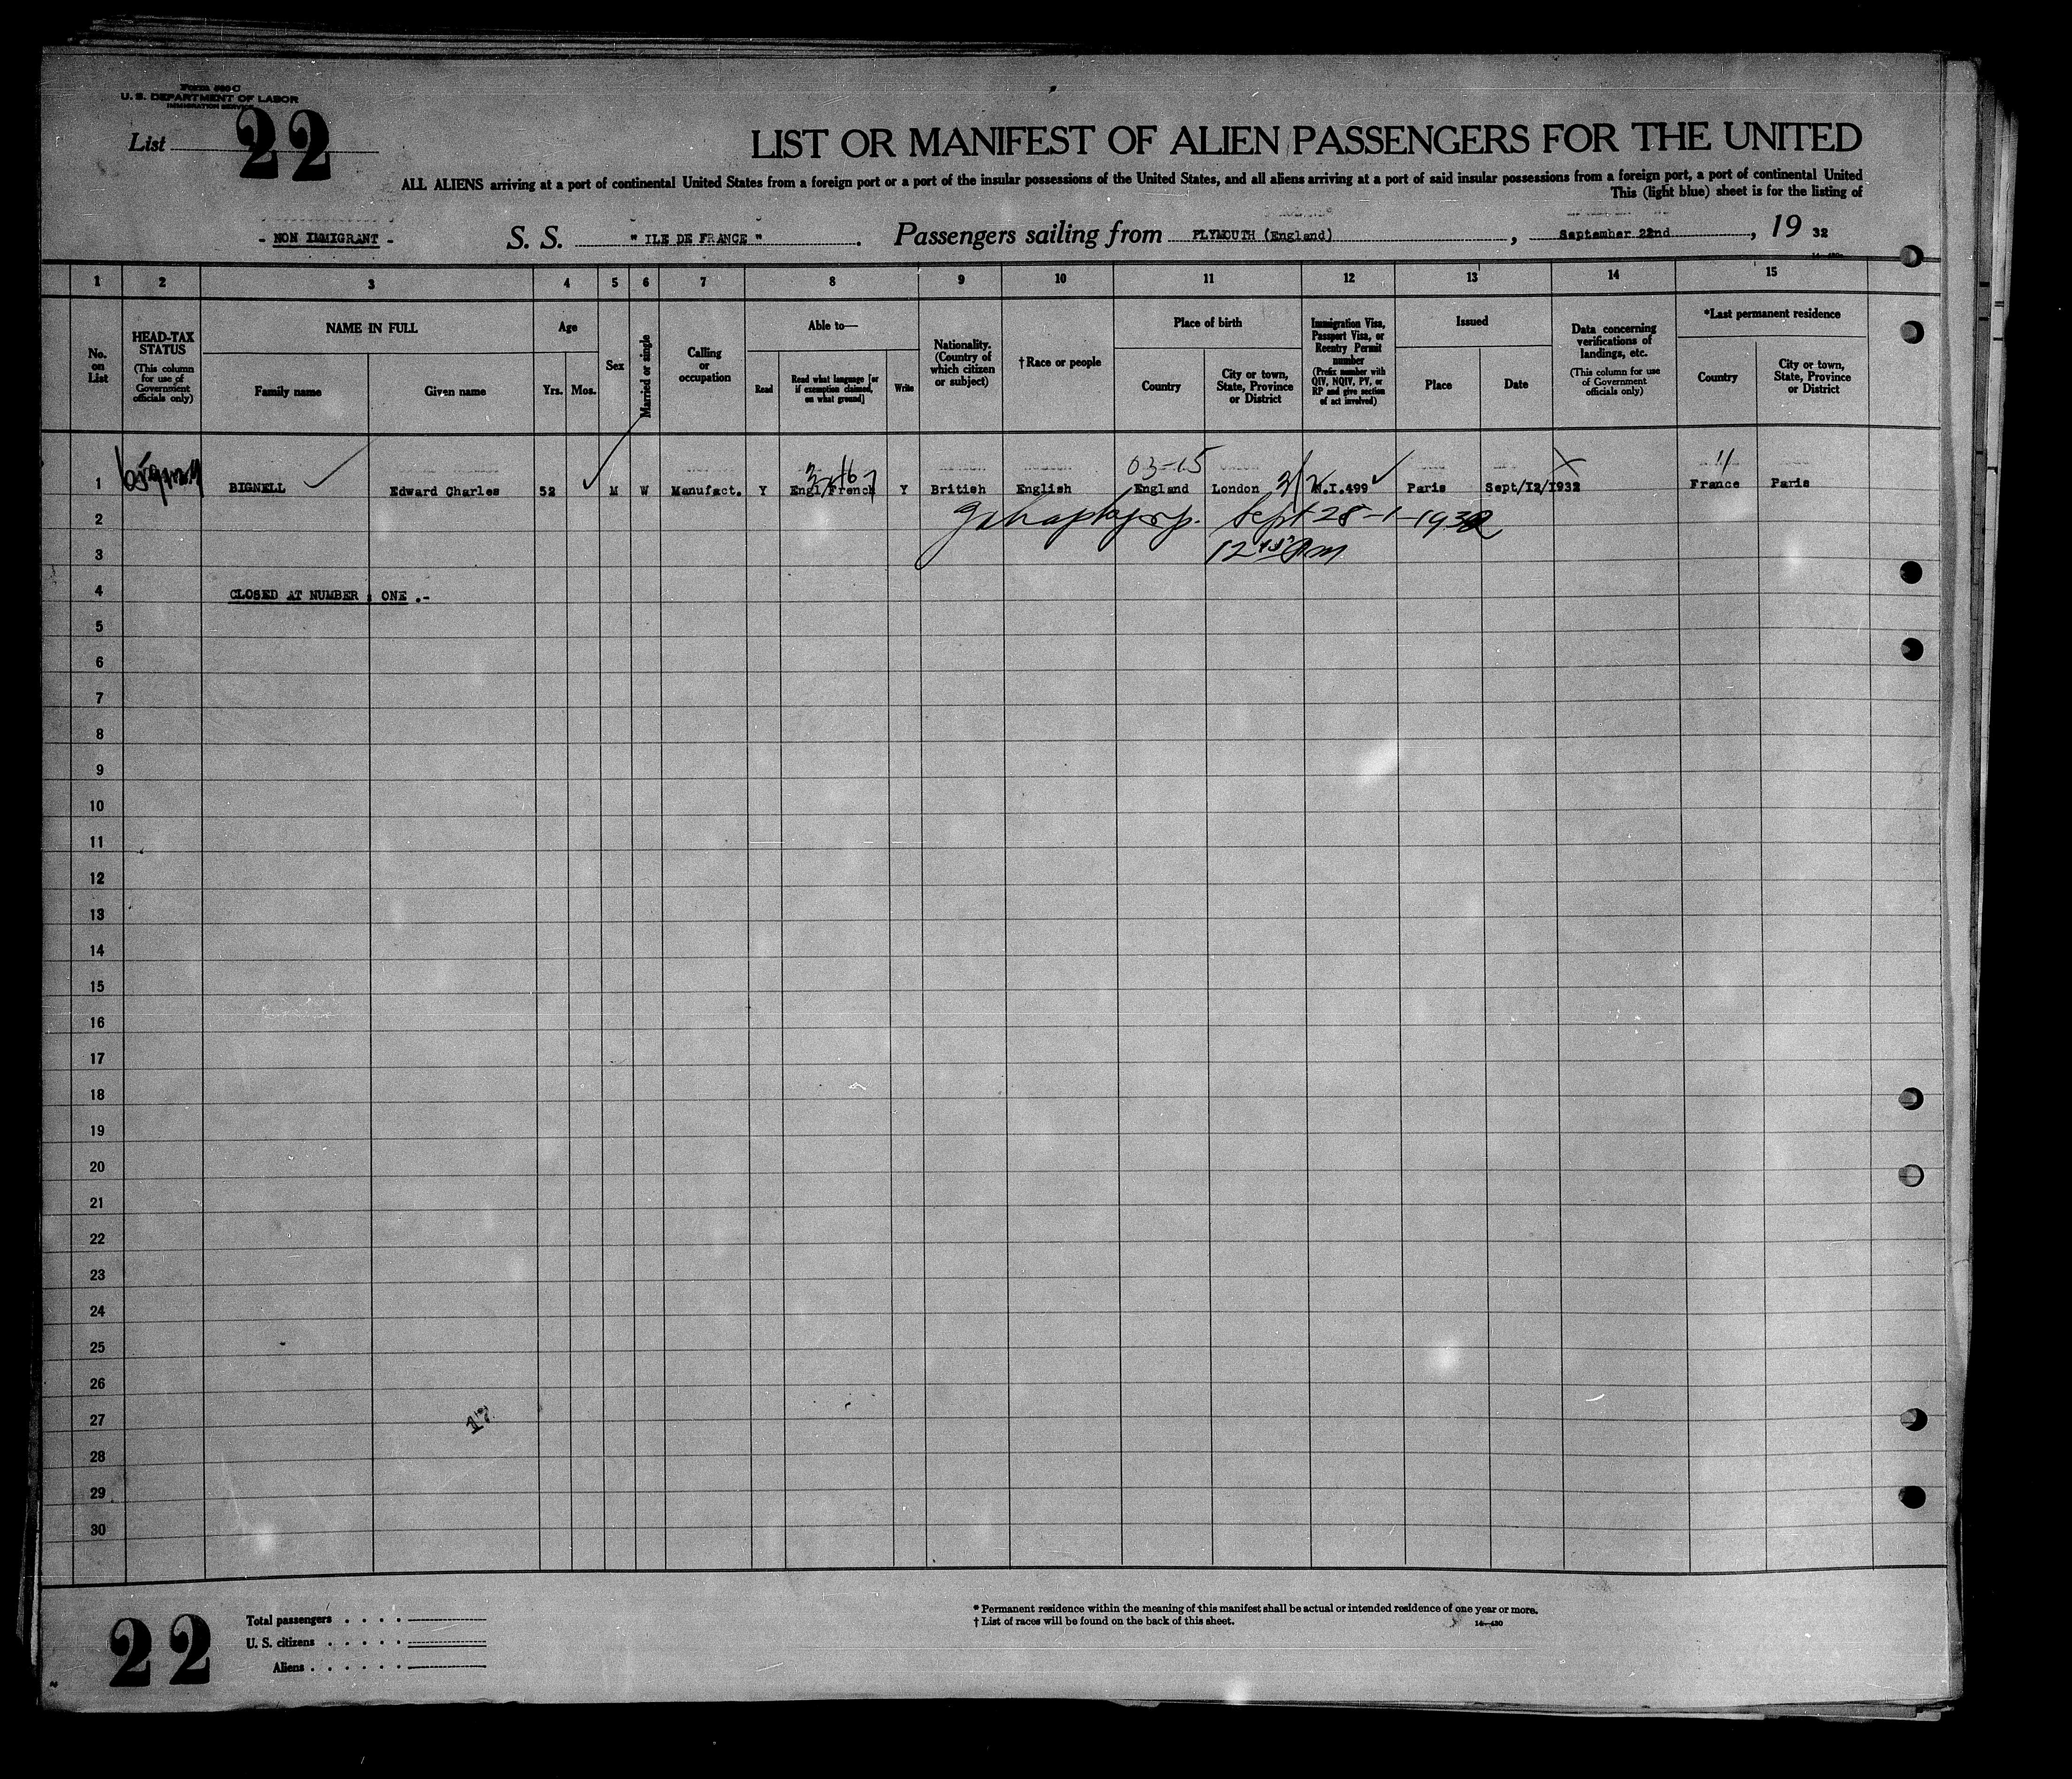 Form 500 C
U. S. DEPARTMENT OF LABOR
IMMIGRATION SERVICE
List 22
LIST OR MANIFEST OF ALIEN PASSENGERS FOR THE UNITED
ALL ALIENS arriving at a port of continental United States from a foreign port or a port of the insular possessions of the United States, and all aliens arriving at a port of said insular possessions from a foreign port, a port of continental United
This (light blue) sheet is for the listing of
- NON IMMIGRANT - S. S. " ILE DE FRANCE " . Passengers sailing from PLYMOUTH (England) , September 22nd , 19 32
1 2 3 4 5 6 7 8 9 10 11 12 13 14 15
No. on List
HEAD-TAX STATUS (This column for use of Government officials only)
NAME IN FULL
Family name
Given name
Age
Yrs. Mos.
Sex
Married or single
Calling or occupation
Able to—
Read
Read what language [or if exemption claimed, on what ground]
Write
Nationality. (Country of which citizen or subject)
† Race or people
Place of birth
Country
City or town, State, Province or District
Immigration Visa, Passport Visa, or Reentry Permit number (Prefix number with QIV, NQIV, PV, or RP and give section of act involved)
Issued
Place
Date
Data concerning verifications of landings, etc. (This column for use of Government officials only)
*Last permanent residence
Country
City or town, State, Province or District
03-15
1 BIGNELL Edward Charles 52 M W Manufact. Y Engl/French Y British English England London 3/2 N.I.499 Paris Sept/12/1932 France Paris
2 Sept 28-1-1932
3 12 45 AM
4 CLOSED AT NUMBER : ONE .-
5
6
7
8
9
10
11
12
13
14
15
16
17
18
19
20
21
22
23
24
25
26
27 17
28
29
30
22
Total passengers . . . .
U. S. citizens . . . . .
Aliens . . . . . .
* Permanent residence within the meaning of this manifest shall be actual or intended residence of one year or more.
† List of races will be found on the back of this sheet.
14—430